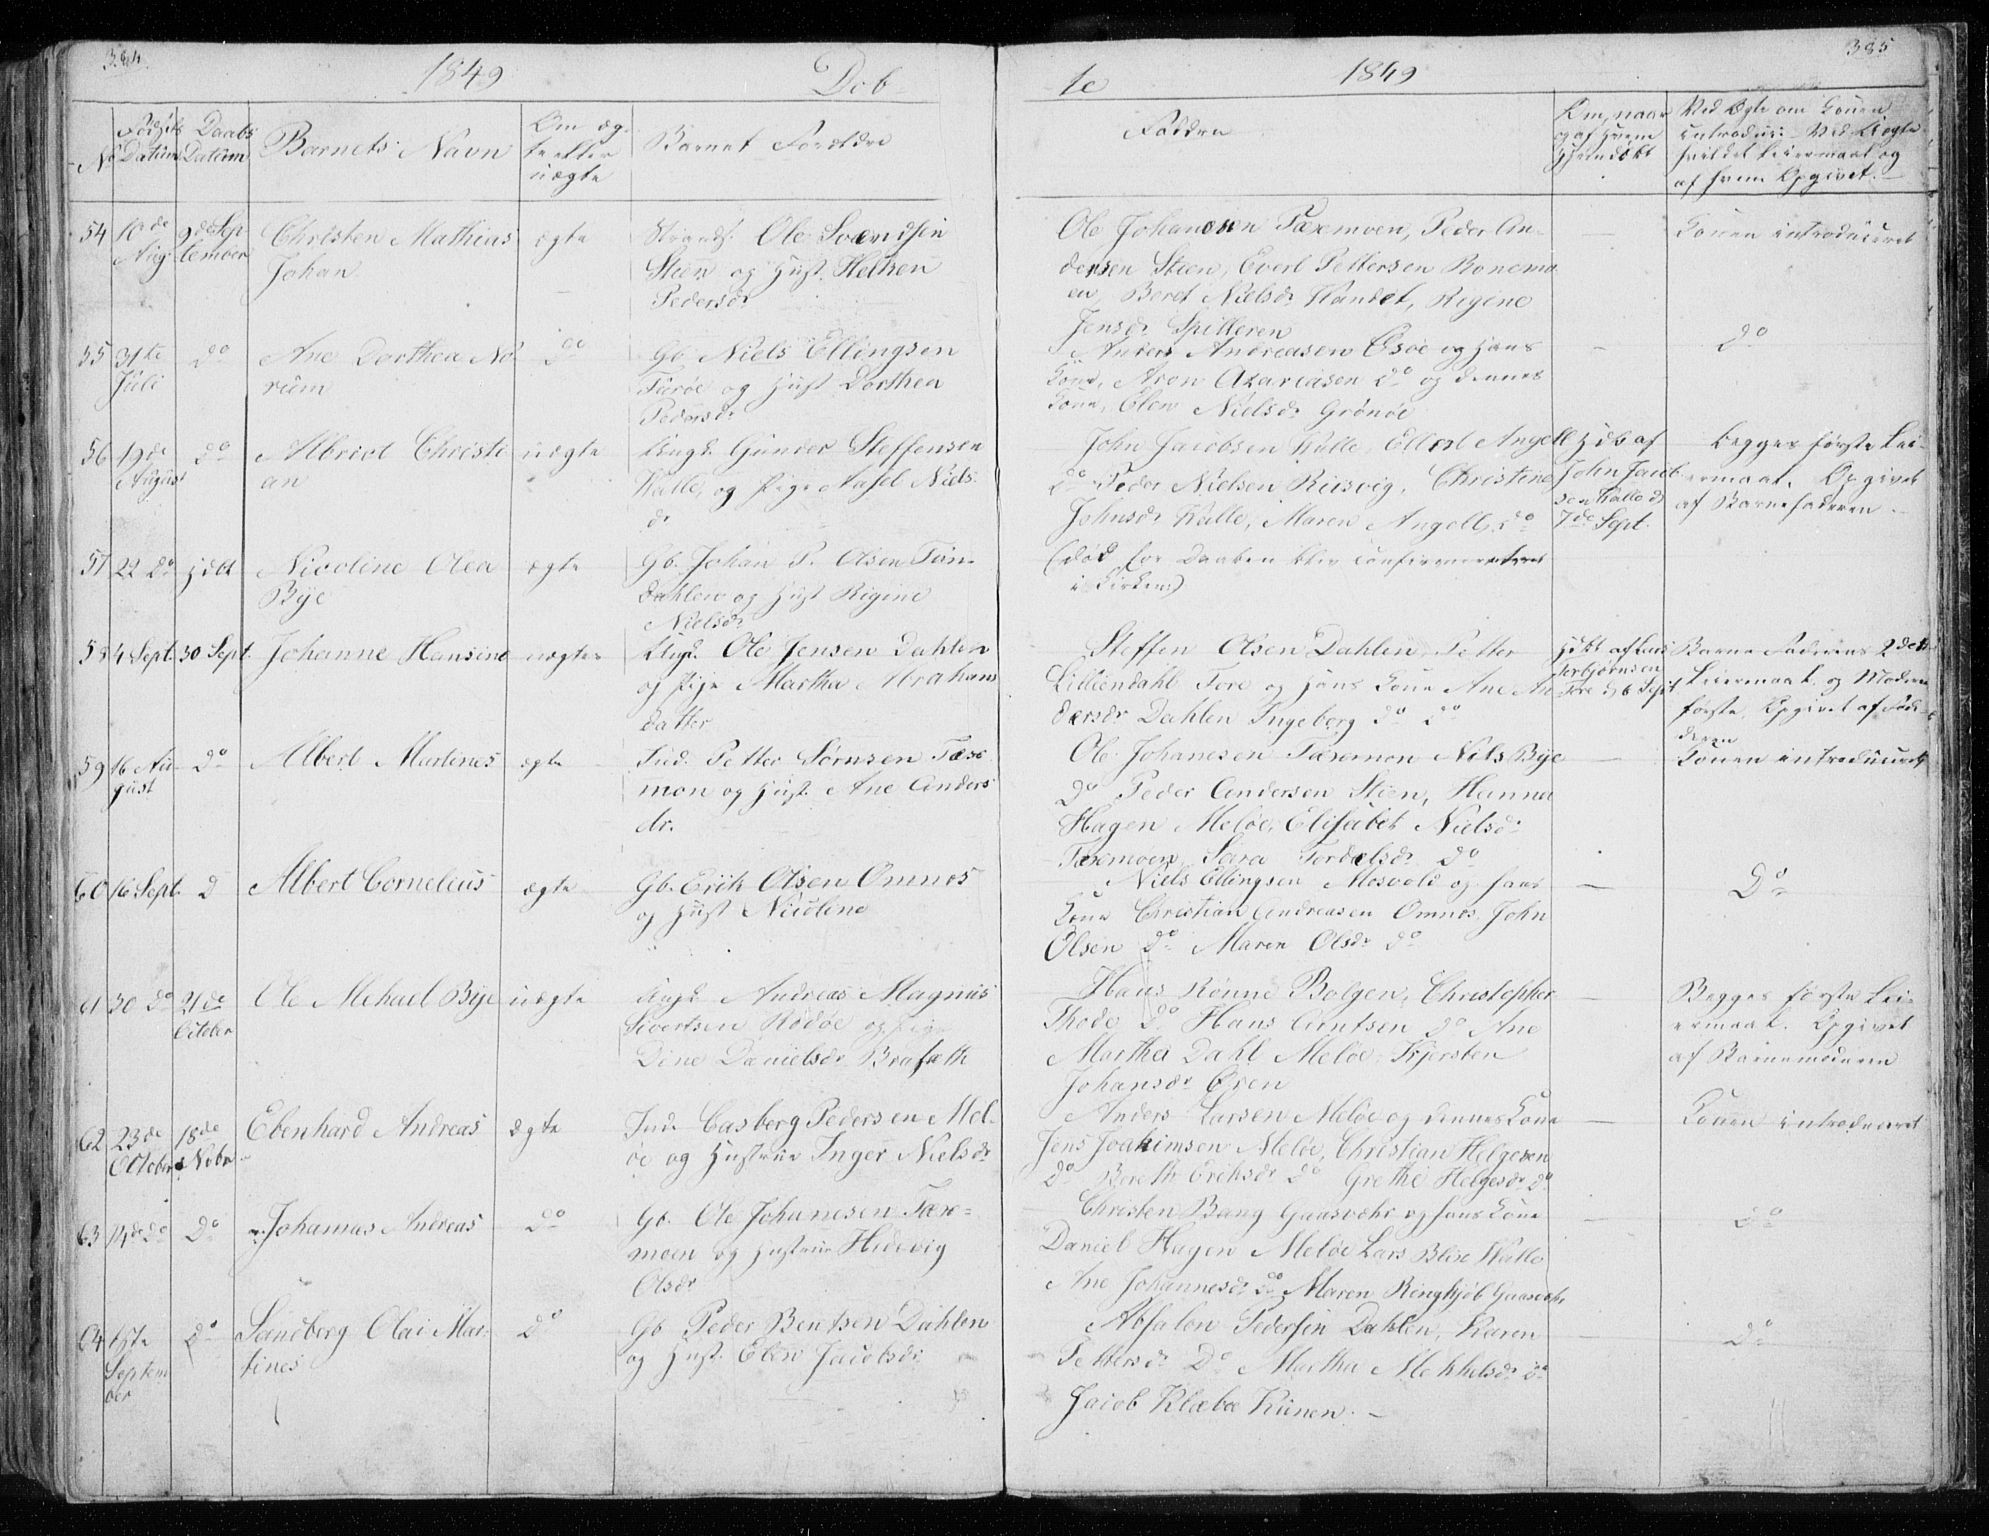 384. 1849 Døb
te 1849 385
No
Fødsels Datum
Daabs Datum
Barnets Navn
Om æg-
te eller
uægte
Barnets Forældre
Faddre
Om, naar
og af hvem
hjemdøbt
Ved Ægte om Konen
introdus: Ved Uægte
hvildet Leiermaal og
af hvem Opgivet.
54 10de Aug 9de September Christen Mathias
Johan
ægte
Strands. Ole Svendsen
Steen og Hust. Helsen
Pedersdr
Ole Johansen Færemoen, Peder An-
dersen Steen, Evert Pettersen Bonemo
en, Beret Nielsdr Kandal, Regine
Jensdr Spilderen
—
Konen introduceret
55 31te Juli Do Ane Dorthea No-
rum
Do
Gb. Niels Ellingsen
Furöe og Hust Dorthea
Pedersdr
Anders Andreasen Esöe og hans
Kone, Aron Azariasen do og dennes
Kone, Elen Nielsdr Grönöe
—
Do
56 19de August do Albrict Christi
an
uægte
Ungk. Gunder Steffensen
Kalle, og Pige Aasel Niels-
dr
John Jacobsen Kalle, Ellert Angell
do Peder Nielsen Reisvig, Christine
Johnsdr Kalle, Maren Angell, do
Hdb af
John Jacob
sen Kalle d
7de Sept.
Begges første Lei-
ermaal. Opgivet
af Barnefaderen.
57 22 do Hdbt Nicoline Olea
Bye
ægte
Gb. Johan P. Olsen Tøn-
dahlen og Hust Regine
Nielsdr
(død før Daaben blev confirmeret
i Kirken)
58 4 Sept. 30 Sept. Johanne Hansine uægte
Ungk. Ole Jensen Dahlen
og Pige Martha Abrahams
datter
Steffen Olsen Dahlen Petter
Lilliendahl Fore og hans Kone Ane An
dersdr Dahlen Ingeborg do do
Hdbt af Lars
Torbjørnsen
Fore d 6 Sept
Barne Faderens 2det
Leiermaal og Moderens
første. Opgivet af Fa-
deren
59 16 Au-
gust
Do Albert Martines ægte
Ind. Petter Sörnsen Fære
moen og Hust. Ane Anders
dr.
Ole Johanesen Færemoen Nils Bye
Do Peder Andersen Steen, Hanna
Hagen Melöe, Elisabet Nielsdr
Færemoen, Sara Tordalsdr do
—
Konen introduceret
60 16 Sept. D Albert Cornelius ægte
Gb. Erik Olsen Omnes
og Hust Nicoline
Niels Ellingsen Mosvold og hans
Kone Christian Andreasen Omnes, John
Olsen do Maren Olsdr do
—
Do
61 30 do 21de
October
Ole Mehael Bye uægte
Ungk. Andreas Magnus
Sivertsen Rödöe og Pige
Dine Danielsdr Brasæth
Hans Rönne Bolgen, Christopher
Thode do Hans Arntsen do Ane
Martha Dahl Melöe, Kjersten
Johansdr Ören
—
Begges første Lei-
ermaal. Opgivet
af Barnemoderen
62 23de
October
18de
Nobr
Ebenhard Andreas ægte
Ind. Casberg Pedersen Mel-
öe og Hustrue Inger Nielsdr
Anders Larsen Melöe og dennes Kone
Jens Joakimsen Melöe, Christian Helgesen
do Bereth Eriksdr do Grethe Helgesdr do
—
Konen introduceret
63 14de do Do Johannas Andreas do
Gb. Ole Johannesen Fære-
moen og Hustrue Hedevig
Olsdr
Christen Bang Gaasvær og hans Kone
Daniel Hagen Melöe Lars Blix Kalle
Ane Johannesdr do Maren Ringkjöb Gaasvær
—
do
64 1ste
Septem
ber
Do Sandberg Olai Mar-
tines
Do
Gb Peder Bentsen Dahlen
og Hust. Elen Jacobsdr
Absalon Pedersen Dahlen, Karen
Pettersdr Do Martha Mekkelsdr do
Jacob Klæboe Kunen.
—
Do